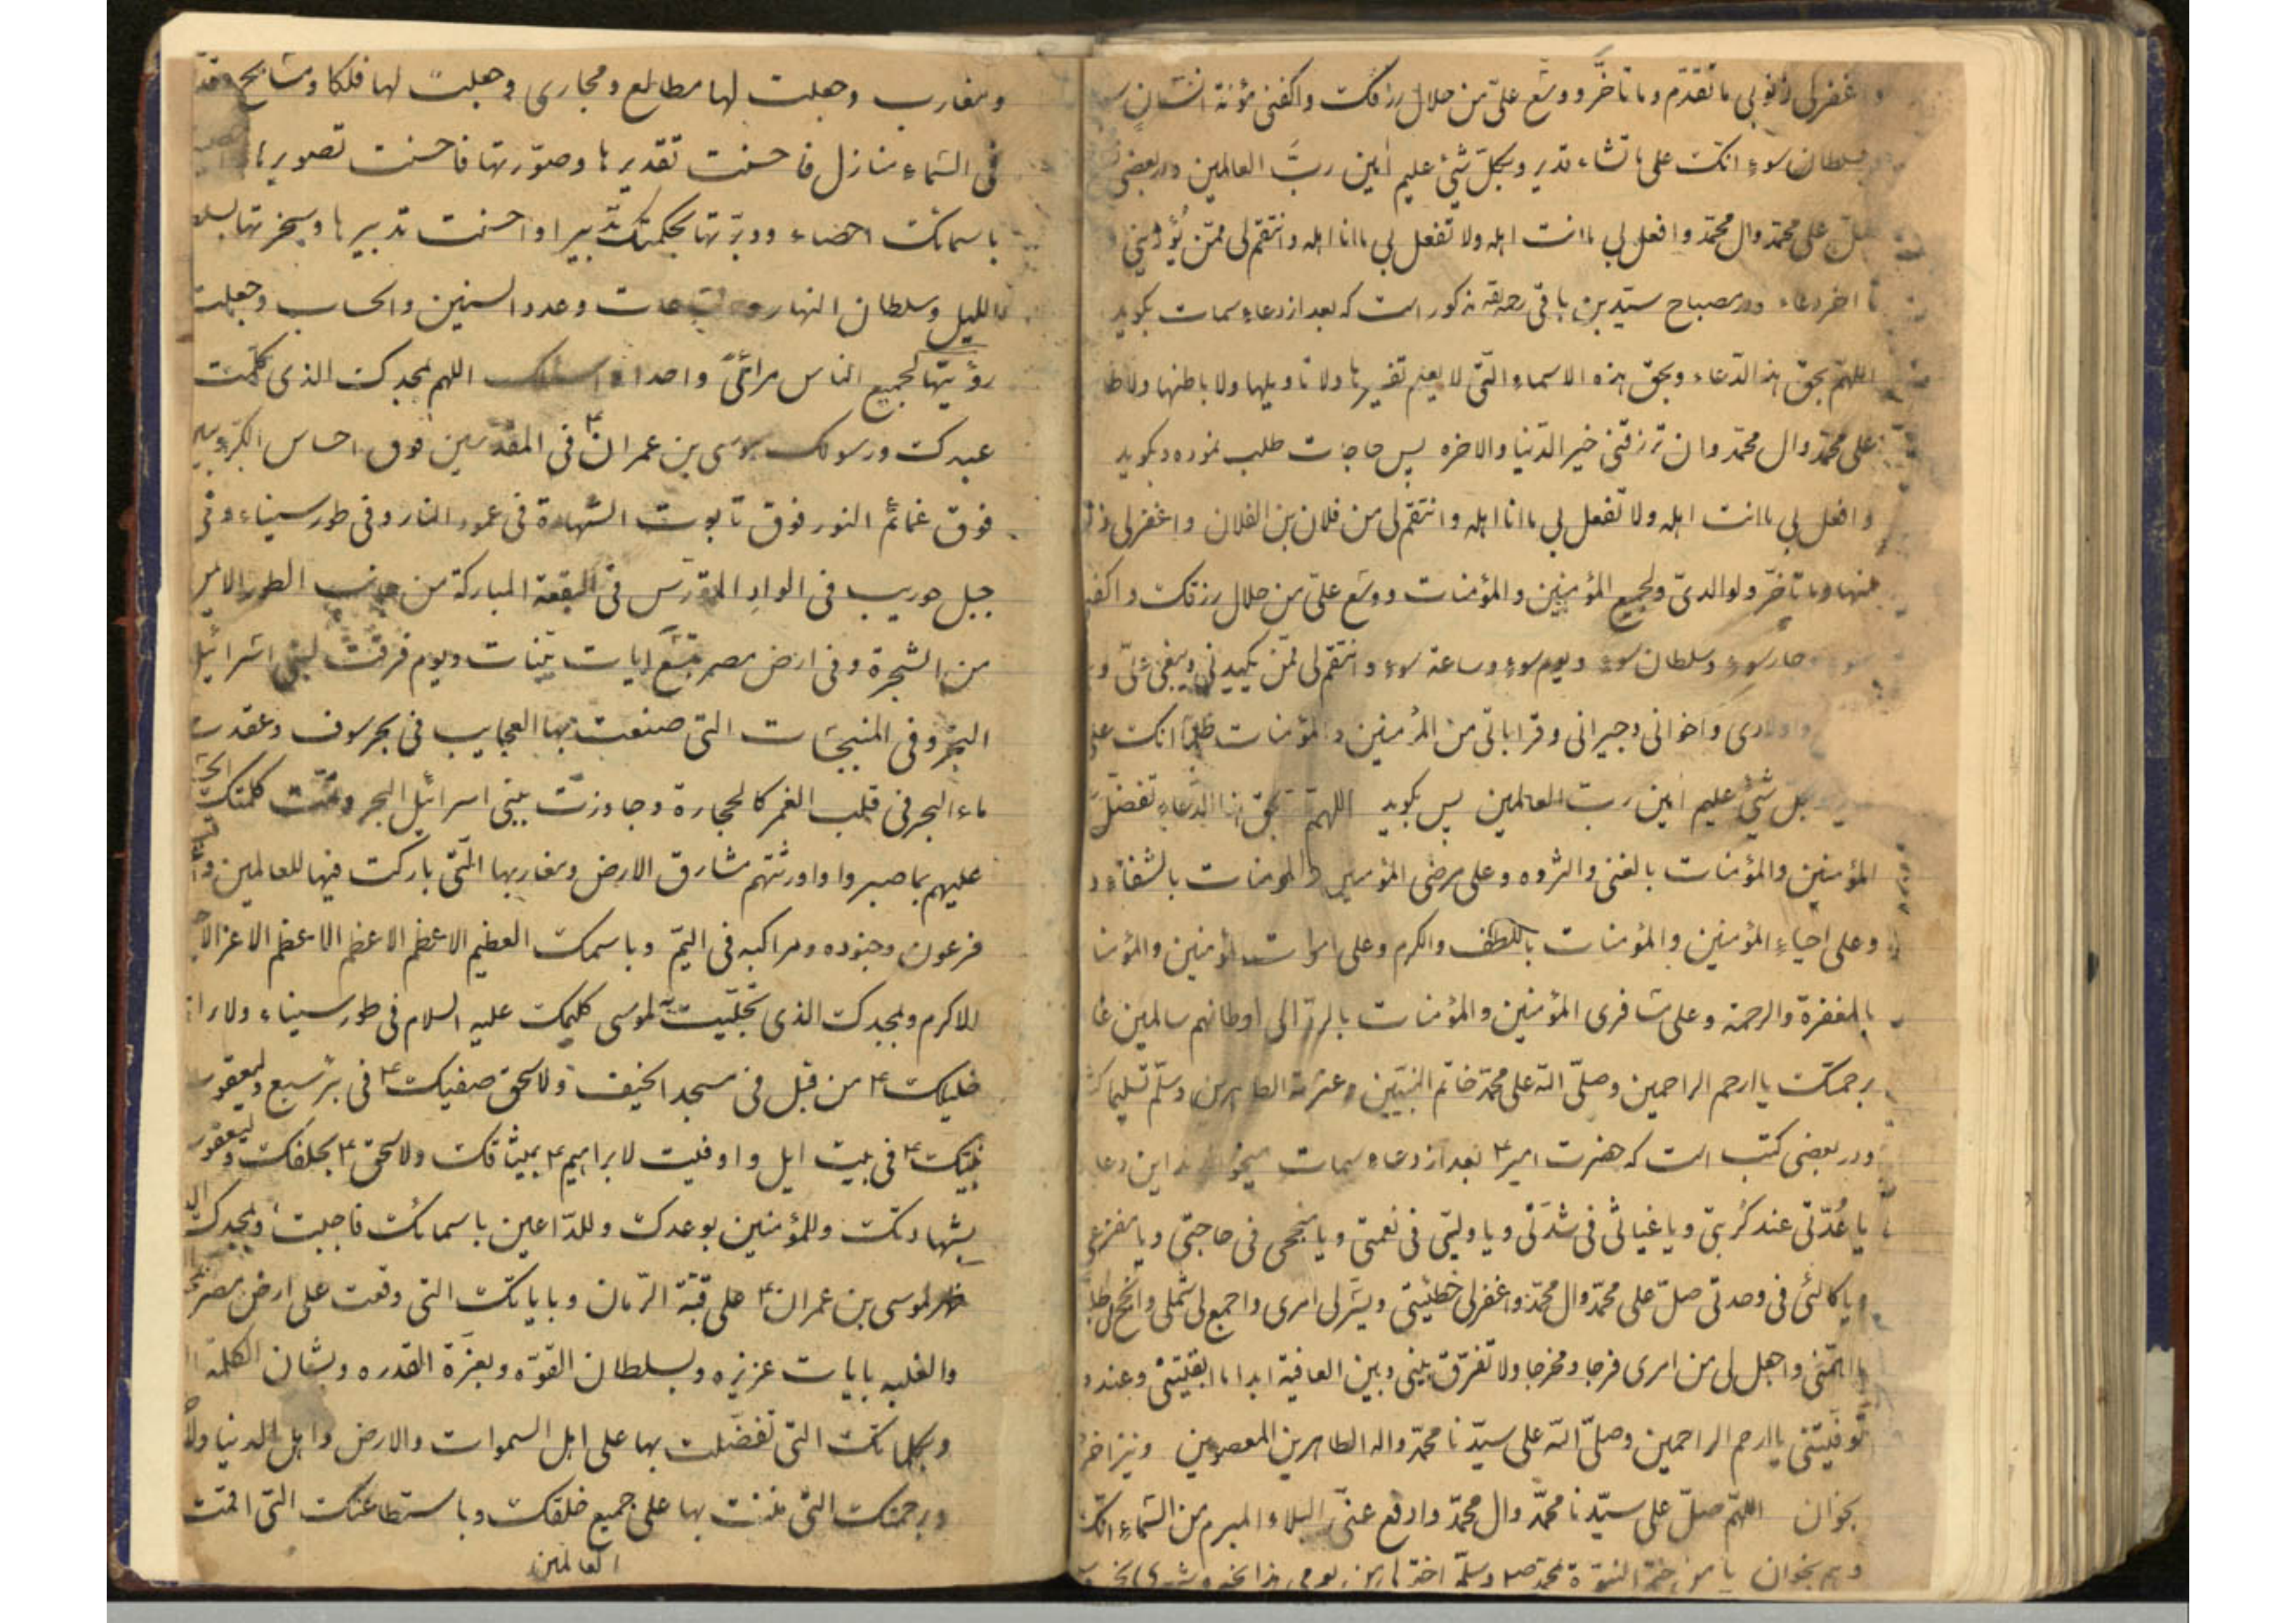 واغفرلی ذنوبی ما تقدّم وما تاخّر ووسّع علیّ من حلال رزقک واکفنی مؤنة انسان سوء
وسلطان سوء انک علی ما تشاء قدیر وبکلّ شیٔ علیم امین ربّ العالمین ودر بعضی
صلّ علی محمّد وال محمّد وافعل بی ما انت اهله ولا تفعل بی ما انا اهله وانتقم لی ممّن یُؤذینی
تا اخر دعاء ودر مصباح سیّد بن باقی رحمه الله مذکور است که بعد از دعاء سمات بکوید
اللهمّ بحق هذا الدّعاء وبحق هذه الاسماء الّتی لا یعلم تفسیرها ولا تاویلها ولا باطنها ولا
علی محمّد وال محمّد وان ترزقنی خیر الدّنیا والاخره پس حاجات طلب نموده وبکوید
وافعل بی ما انت اهله ولا تفعل بی ما انا اهله وانتقم لی من فلان بن الفلان واغفرلی
منها وما تاخّر ولوالدیّ ولجمیع المؤمنین والمؤمنات ووسّع علیّ من حلال رزقک واکفنی
جار سوء وسلطان سوء ویوم سوء وساعة سوء وانتقم لی ممّن یکیدنی ویبغی علیّ
واولادی واخوانی وجیرانی وقراباتی من المؤمنین والمؤمنات ظلماً انک علی
بکلّ شیٔ علیم امین ربّ العالمین پس بکوید اللهمّ بحق هذا الدّعاء تفضّل
المؤمنین والمؤمنات بالغنی والثروه وعلی مرضی المؤمنین والمؤمنات بالشفاء و
وعلی احیاء المؤمنین والمؤمنات باللطف والکرم وعلی اموات المؤمنین والمؤمنا
بالمغفرة والرحمة وعلی مسافری المؤمنین والمؤمنات بالردّ الی اوطانهم سالمین غا
برحمتک یا ارحم الراحمین وصلّی الله علی محمّد خاتم النبیّین وعترته الطاهرین وسلّم تسلیما
ودر بعضی کتب است که حضرت امیر ع بعد از دعاء سمات میخواندند این دعا
یا عُدّتی عند کُربتی ویا غیاثی فی شدّتی ویا ولیّی فی نعمتی ویا منجحی فی حاجتی ویا مفزعی
ویا کالئی فی وحدتی صلّ علی محمّد وال محمّد واغفرلی خطیئتی ویسّرلی امری واجمع لی شملی وانجح لی
واجعل لی من امری فرجا ومخرجا ولا تفرّق بینی وبین العافیة ابدا ما ابقیتنی وعند
توفّیتنی یا ارحم الراحمین وصلّی الله علی سیّدنا محمّد واله الطاهرین المعصومین ونیز اخر
بخوان اللهمّ صلّ علی سیّدنا محمّد وال محمّد وادفع عنّی البلاء المبرم من السّماء انک
وهم بخوان یا من ختم النبوّة بمحمّد
ومغارب وجعلت لها مطالع ومجاری وجعلت لها فلکا ومسابح وقدّ
فی السّماء منازل فاحسنت تقدیرها وصوّرتها فاحسنت تصویرها
باسمائک احصاء ودبّرتها بحکمتک تدبیرا واحسنت تدبیرها وسخّرتها بسلطا
اللیل وسلطان النهار والساعات وعدد السنین والحساب وجعلت
رؤیتها لجمیع الناس مرائیً واحدا واسئلک اللهم بمجدک الذی کلّمت
عبدک ورسولک موسی بن عمران ع فی المقدّسین فوق احساس الکرّوبین
فوق غمائم النور فوق تابوت الشّهادة فی عمود النار وفی طور سیناء وفی
جبل حوریب فی الواد المقدّس فی البقعة المبارکة من جانب الطور الایمن
من الشجرة وفی ارض مصر بتسع ایات بیّنات ویوم فرقت لبنی اسرائیل
البحر وفی المنبجسات التی صنعت بها العجایب فی بحر سوف وعقدت
ماء البحر فی قلب الغمر کالحجارة وجاوزت ببنی اسرائیل البحر وتمّت کلمتک الحسنی
علیهم بما صبروا واورثتهم مشارق الارض ومغاربها الّتی بارکت فیها للعالمین
فرعون وجنوده ومراکبه فی الیمّ وباسمک العظیم الاعظم الاعظم الاعظم الاعز الا
الاکرم وبمجدک الذی تجلّیت به لموسی کلیمک علیه السلام فی طور سیناء ولابرا
خلیلک ع من قبل فی مسجد الخیف ولاسحق صفیک ع فی بئر سبع ولیعقوب
نبیّک ع فی بیت ایل واوفیت لابراهیم ع بمیثاقک ولاسحق ع بحلفک ولیعقوب
بشهادتک وللمؤمنین بوعدک وللدّاعین باسمائک فاجبت وبمجدک الذ
ظهر لموسی بن عمران ع علی قبّة الرّمان وبایاتک التی وقعت علی ارض مصر
والغلبه بایات عزیزه وبسلطان القوّه وبعزّة القدره وبشان الکلمة
وبکلماتک التی تفضّلت بها علی اهل السموات والارض واهل الدنیا والا
وبرحمتک التی مننت بها علی جمیع خلقک وباستطاعتک التی اقمت
العالمین